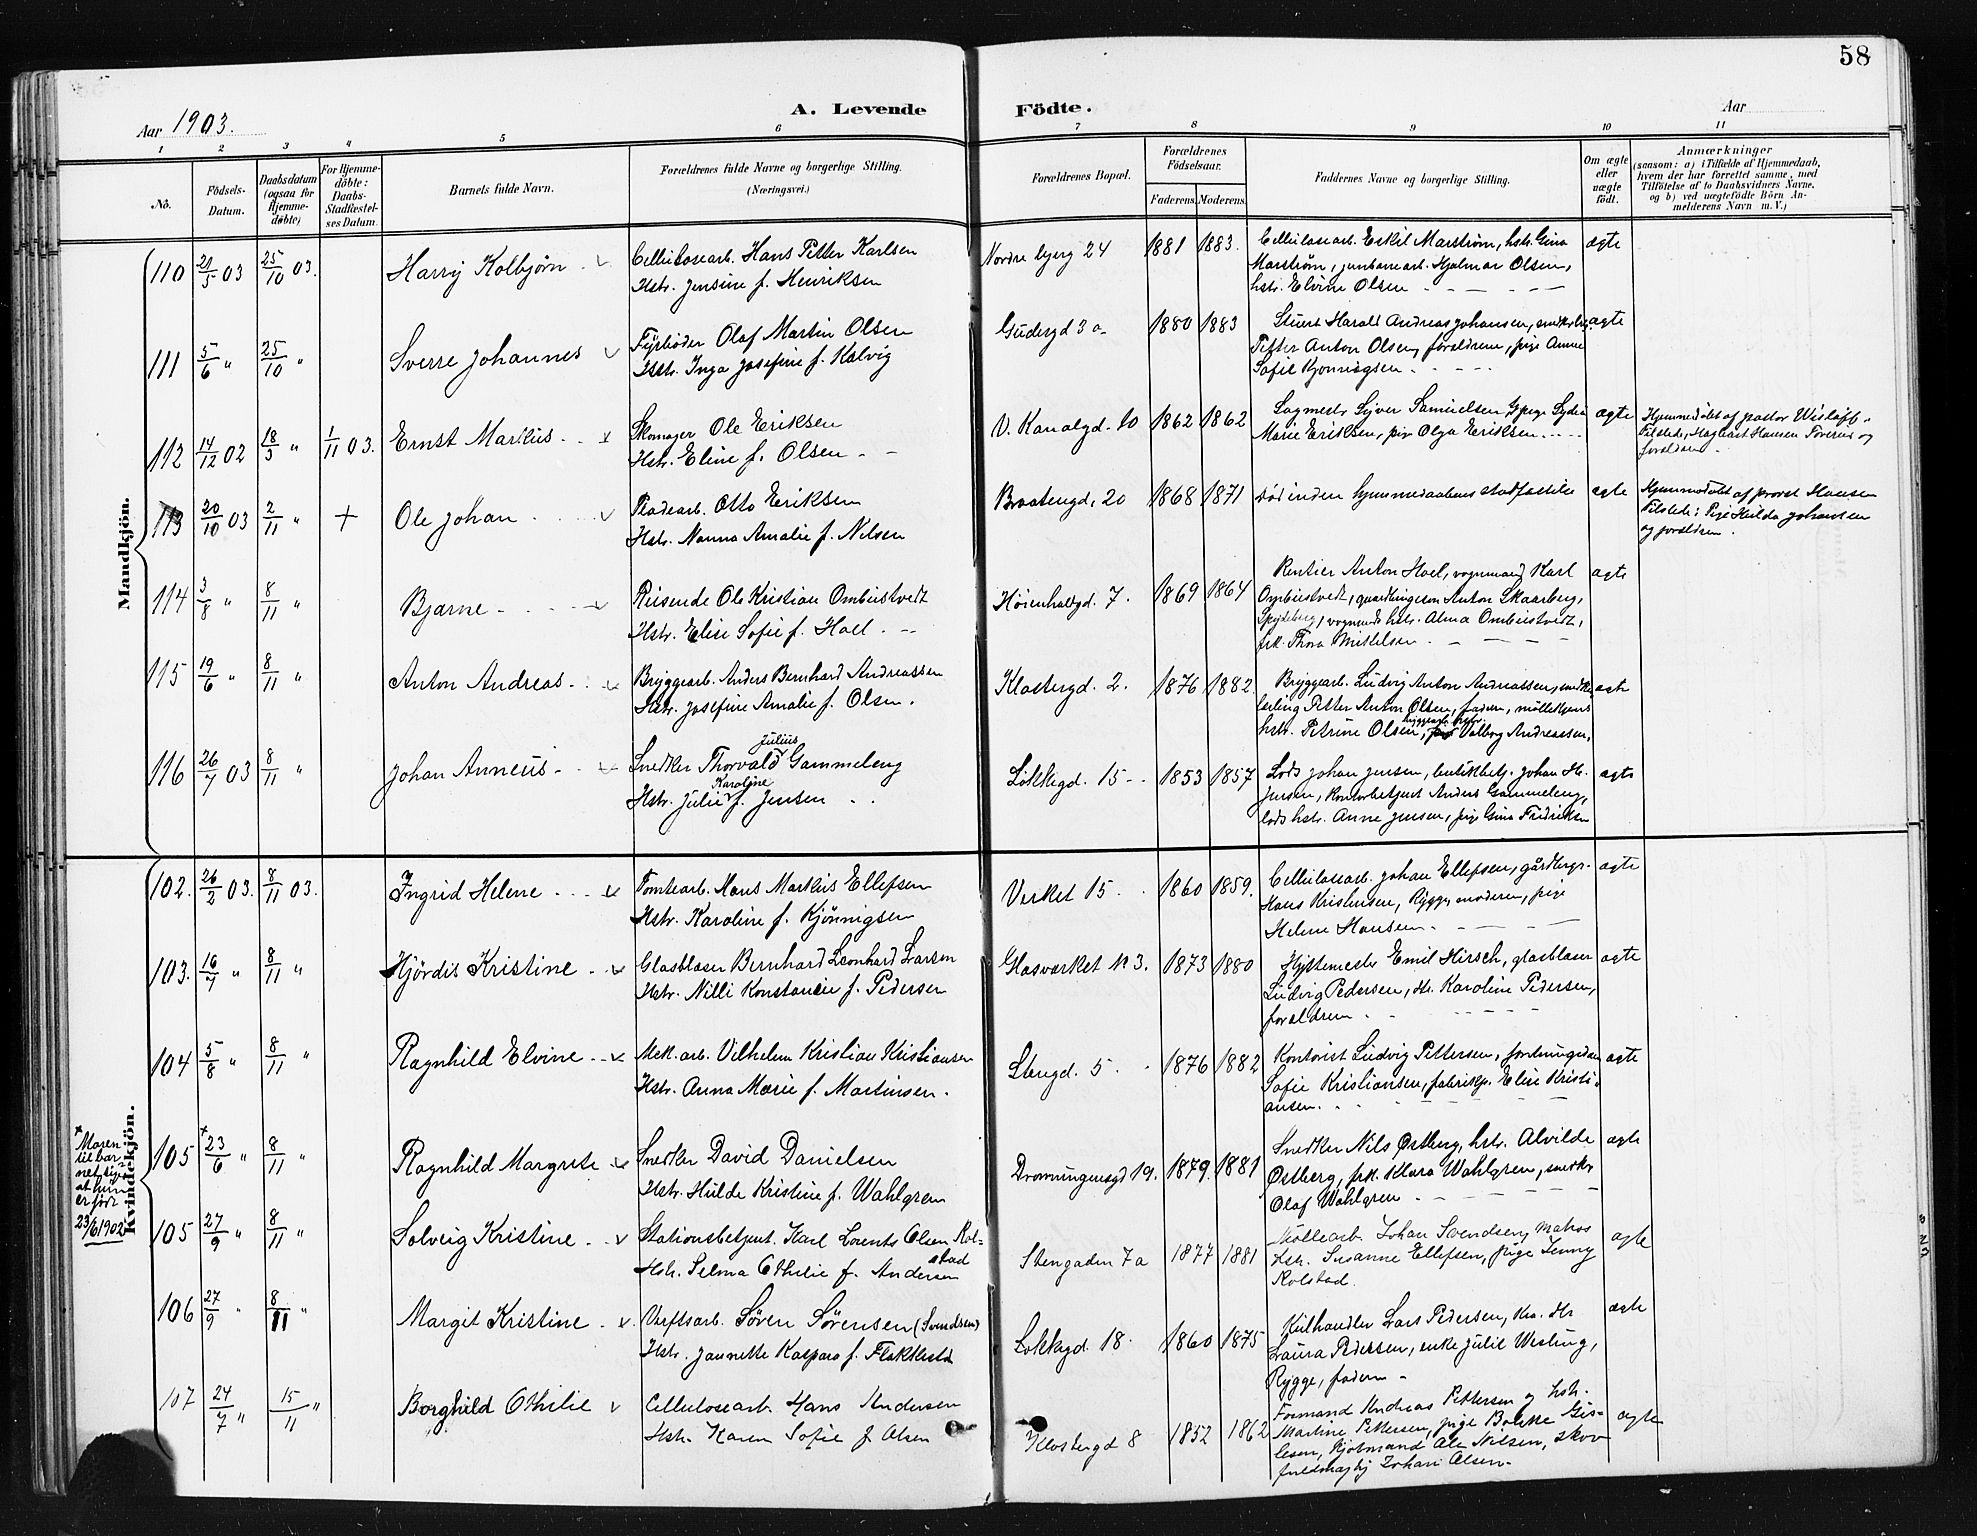 58
Aar 1903.
A. Levende Födte.
Aar
1 2 3 4 5 6 7 8 9 10 11
No.
Födsels-Datum.
Daabsdatum (ogsaa for Hjemme-döbte)
For Hjemme-döbte: Daabs-Stadfæstel-ses Datum.
Barnets fulde Navn.
Forældrenes fulde Navne og borgerlige Stilling.
(Næringsvei.)
Forældrenes Bopæl.
Forældrenes Födselsaar.
Faderens. Moderens.
Faddernes Navne og borgerlige Stilling.
Om ægte eller uægte födt.
Anmærkninger
(saasom: a) i Tilfælde af Hjemmedaab,
hvem der har forrettet samme, med
Tilföielse af to Daabsvidners Navne,
og b) ved uægtefödte Börn An-
melderens Navn m. V.)
Mandkjön.
110 21/5 03 25/10 03. Harry Kolbjørn
Cellulosearb. Hans Petter Karlsen
Hstr. Jensine f. Henriksen
Nordre bjerg 24 1881 1883.
Cellulosearb. Eskil Marstrøm, hstr. Gina
Marstrøm, jernbanearb. Hjalmar Olsen,
hstr. Elvine Olsen
ægte
111 5/6 " 25/10 " Sverre Johannes
Fyrbøder Olaf Martin Olsen
Hstr. Inga Josefine f. Kalvig
Gudesgd 3 a 1880 1883
Stuert Harald Andreas Johansen,
Petter Anton Olsen, forældrene, pige Anna
Sofie
ægte
112 14/12 02 18/3 " 1/11 03. Ernst Markus
Skomager Ole Eriksen
Hstr. Eline f. Olsen
V. Kanalgd. 10 1862 1862
Sagmestr. Syver Samuelsen, pige Lydia
Marie Eriksen, pige Olga Eriksen
ægte
Hjemmedøbt af pastor Wisløff.
Tilstede, Hagbart Hansen og
forældrene
113 20/10 03 2/11 " + Ole Johan
Pladearb. Otto Eriksen
Hstr. Nanna Amalie f. Nilsen
Braatengd. 20 1868 1871
død inden hjemmedaabens stadfæstelse
ægte
Hjemmedøbt af provst Hansen
Tilstede: Pige Hulda Johansen
og forældrene.
114 3/8 " 8/11 " Bjarne
Reisende Ole Kristian Ombustvedt
Hstr. Elise Sofie f. Hoel
Høienhaldgd. 7. 1869 1864
Rentier Anton Hoel, vognmand Karl
Ombustvedt, gaardbruger Anton Skaarberg,
Spydeberg, vognmands hstr. Alma Ombustvedt,
frk. Thora Mikkelsen
ægte
115 19/6 " 8/11 " Anton Andreas
Bryggearb. Anders Bernhard Andreassen
Hstr. Josefine Amalie f. Olsen.
Klostergd. 2. 1876 1882.
Bryggearb. Ludvig Anton Andreassen, snedker
lærling Petter Anton Olsen, faderen,
hstr. Petrine Olsen, bryggearb. hstr. Valborg Andreassen,
ægte
116 26/7 03 8/11 " Johan Anneus
Julius
Snedker Thorvald Gammeleng
Karoline
Hstr. Julie f. Jensen
Løkkegd. 15 1853 1857
Lods Johan Jensen, butikbetj. Johan Hr.
Jensen, kontorbetjent Anders Gammeleng,
lods hstr. Anne Jensen, pige Gina Fredriksen
ægte
Kvindekjön.
102. 26/2 03. 8/11 03. Ingrid Helene
Tomtearb. Hans Markus Ellefsen
Hstr. Karoline f. Kjønnigsen
Verket 15 1860 1859.
Cellulosearb. Johan Ellefsen, gårdbrgr.
Hans Kristensen, Rygge, moderen, pige
Helene Hansen
ægte
103. 16/7 " 8/11 " Hjördis Kristine
Glasblæser Bernhard Leonhard Larsen
Hstr. Nilli Konstance f. Pedersen
Glasværket № 3. 1873 1880
Hyttemester Emil Hirsch, glasblæser
Ludvig Pedersen, Hr. Karoline Pedersen,
forældrene
ægte
104 5/8 " 8/11 " Ragnhild Elvine
Mek. arb. Vilhelm Kristian Kristiansen
Hstr. Anna Marie f. Martinsen.
Stengd. 5 1876 1882
Kontorist Ludvig Pettersen,
Sofie Kristiansen, fabrikp. Elise Kristi-
ansen
ægte
×
Moren
til bar
net sige
at hun
er født
23/6 1902
105 × 23/6 " 8/11 " Ragnhild Margrete
Snedker David Danielsen
Hstr. Hulda Kristine f. Wahlgren
Dronningensgd 19. 1879. 1881
Snedker Nils Østberg, hstr. Alvilde
Østberg, frk. Klara Wahlgren, snedker
Olaf Wahlgren
ægte
105 27/9 " 8/11 " Solveig Kristine
Stationsbetjent. Karl Lorents Olsen Rol-
stad
Hstr. Selma Othilie f. Andersen
Stengaden 7a 1877 1881
Møllearb. Johan Svendsen, Matros
hstr. Susanne Ellefsen, pige Jenny
Rolstad.
ægte
106 27/9 " 8/11 " Margit Kristine
Verftsarb. Søren Sørensen (Svendsen)
Hstr. Jannette Kaspara f.
Løkkegd. 18. 1860 1875
Kulhandler Lars Pedersen, hstr.
Laura Pedersen, enke Julie Westling,
Rygge, faderen
ægte
107 24/7 " 15/11 " Borghild Othilie
Cellulosearb Hans Andersen
Hstr. Karen Sofie f Olsen
Klostergd 8 1852 1862
Formand Andreas Pettersen og hstr.
Martine Pettersen, pige Bolette Gis-
lesen, Kjøbmand Ole Nilsen, skov
fuldmægtig Johan Olsen.
ægte